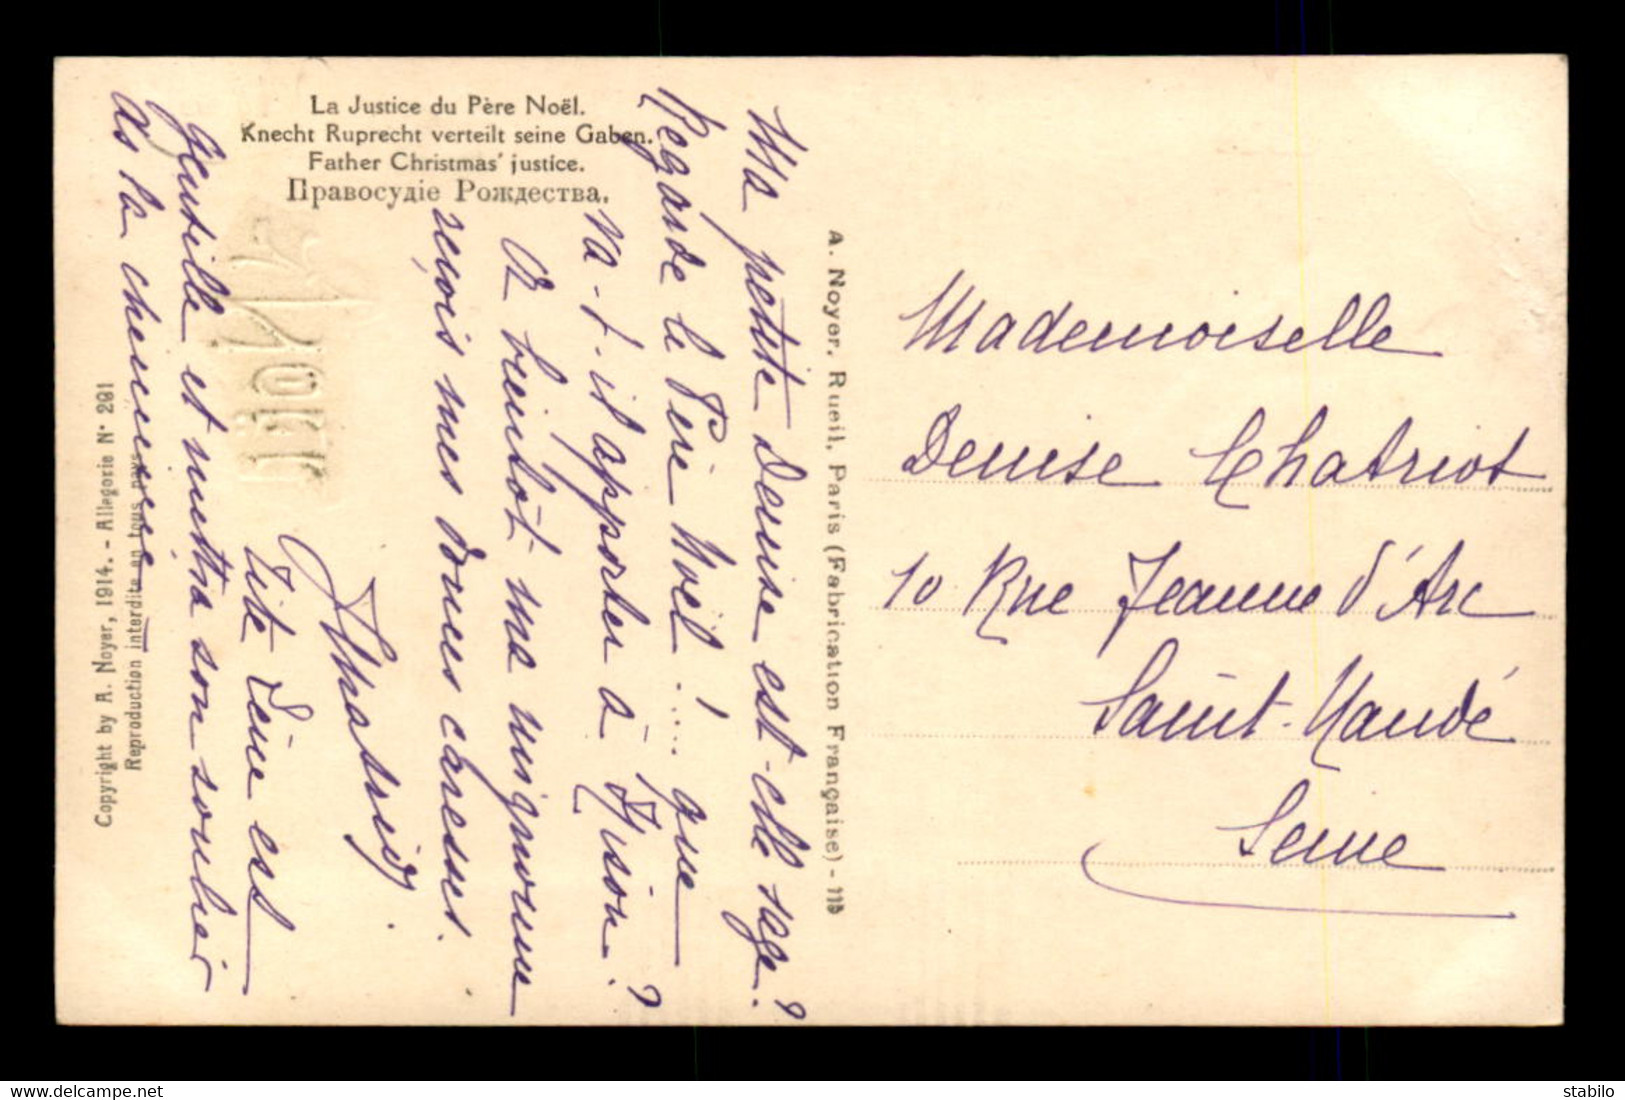 La Justice du Père Noël.
Knecht Ruprecht verteilt seine Gaben.
Father Christmas' justice.
Правосудіе Рождества.
Ma petite Denise est-elle sage ?
Regarde le Père Noël !.... que
va-t-il apporter à Dijon ?
A bientôt ma mignonne
reçois mes douces caresses.
Tite Line est
gentille et mettra son soulier
ds la cheminée
A. Noyer, Rueil, Paris (Fabrication Française) - 115
Copyright by A. Noyer, 1914. - Allegorie N° 291
Reproduction interdite en tous pays
Mademoiselle
Denise Chatriot
10 Rue Jeanne d'Arc
Saint-Mandé
Seine
delcampe.net
stabilo